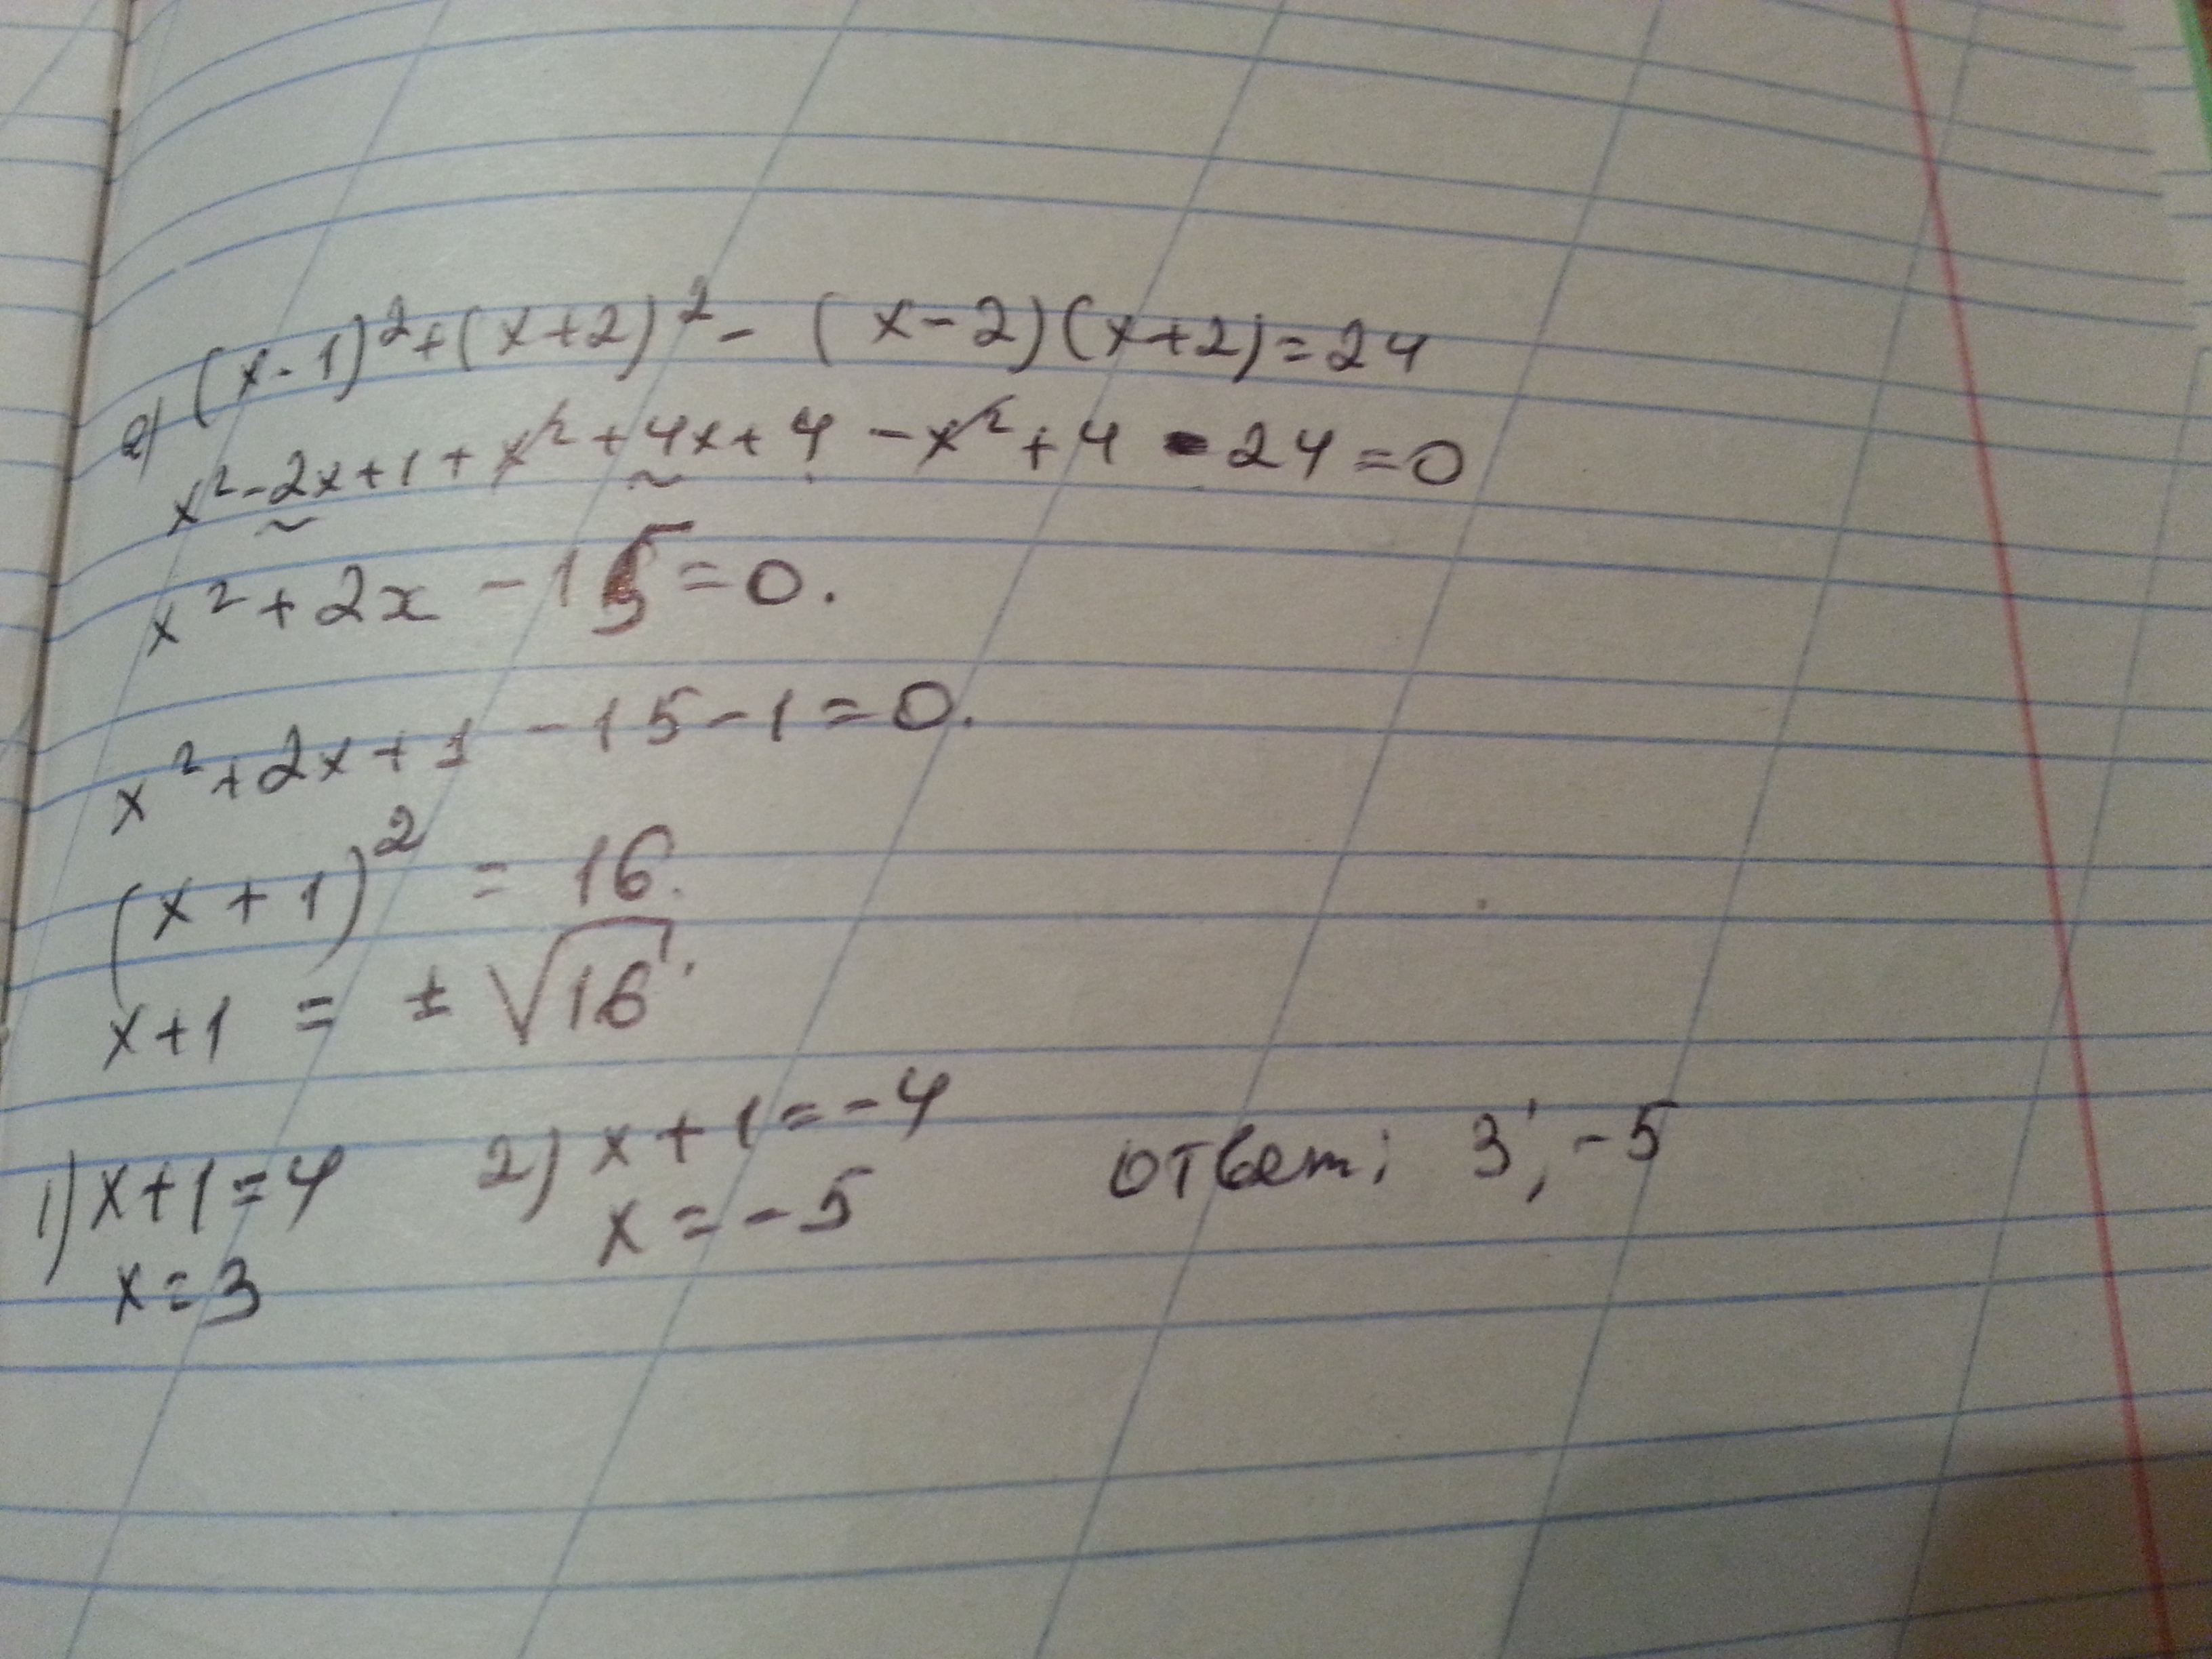 2) (x-1)²+(x+2)²-(x-2)(x+2)=24
x²-2x+1+x²+4x+4-x²+4-24=0
x²+2x-15=0.
x²+2x+1-15-1=0.
(x+1)²=16.
x+1=±√16.
1) x+1=4 2) x+1=-4 ответ: 3; -5
x=3 x=-5